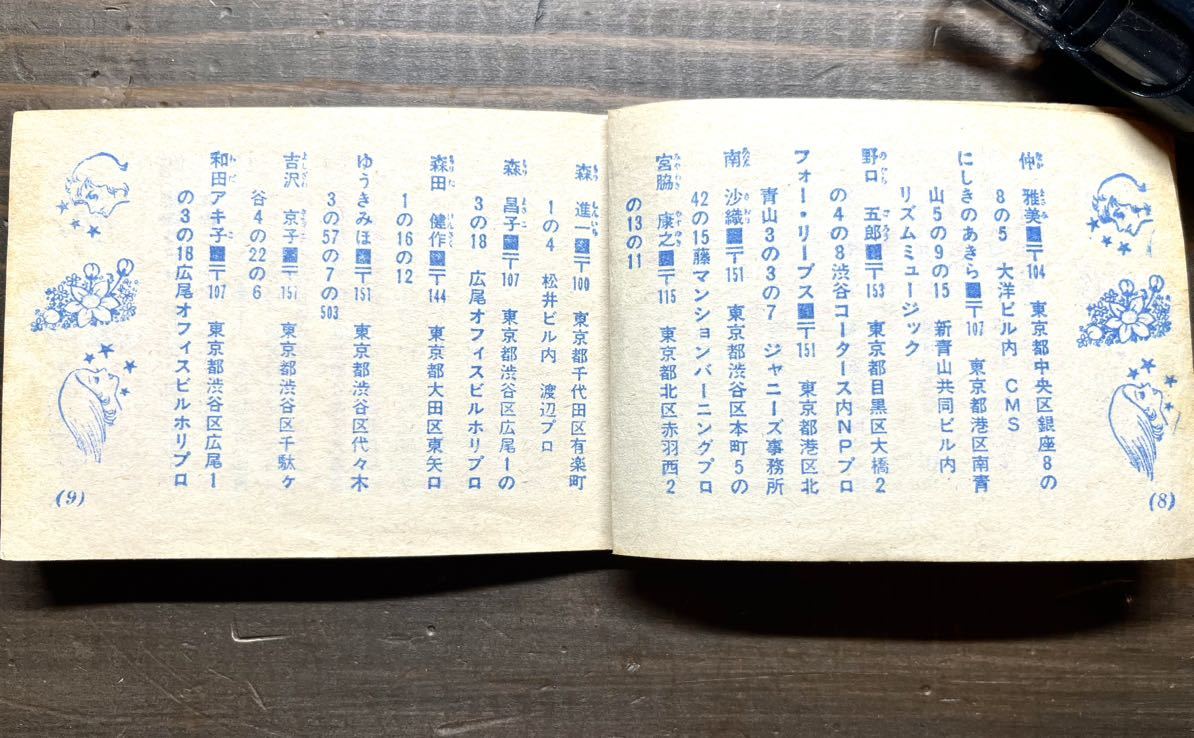 仲 雅美■〒104 東京都中央区銀座8の
8の5 大洋ビル内 CMS
にしきのあきら■〒107 東京都港区南青
山5の9の15 新青山共同ビル内
リズムミュージック
野口 五郎■〒153 東京都目黒区大橋2
の4の8渋谷コータース内NPプロ
フォー・リーブス■〒151 東京都港区北
青山3の3の7 ジャニーズ事務所
南 沙織■〒151 東京都渋谷区本町5の
42の15藤マンションバーニングプロ
宮脇 康之■〒115 東京都北区赤羽西2
の13の11
(8)
森 進一■〒100 東京都千代田区有楽町
1の4 松井ビル内 渡辺プロ
森 昌子■〒107 東京都渋谷区広尾1の
3の18 広尾オフィスビルホリプロ
森田 健作■〒144 東京都大田区東矢口
1の16の12
ゆうきみほ■〒151 東京都渋谷区代々木
3の57の7の503
吉沢 京子■〒157 東京都渋谷区千駄ヶ
谷4の22の6
和田アキ子■〒107 東京都渋谷区広尾1
の3の18広尾オフィスビルホリプロ
(9)